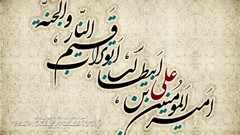 امیرالمؤمنین علی بن ابیطالب
ابوتراب قسیم النار والجنة